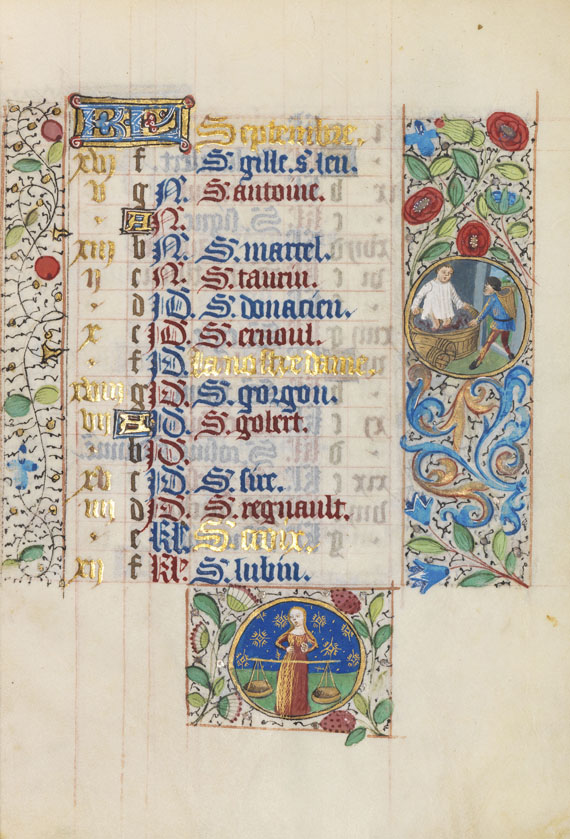 KL Septembre.
xvij f S. gille s. leu.
v g N. S. antoine.
. A N.
xiij b N. S. martel.
ij c N. S. taurin.
. d N. S. donacien.
x e D. S. ernoul.
. f D. La nostre dame.
xviij g D. S. gorgon.
vij A D. S. golert.
. b D.
xv c D. S. sire.
iiij d D. S. regnault.
. e Kl. S. croix.
xij f Kl. S. lubin.